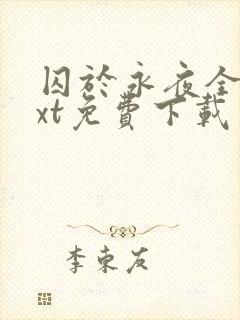 囚於永夜全
xt免費下載
李東友